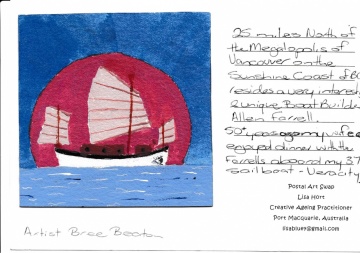 25 miles North of
the Megalopolis of
Vancouver on the
Sunshine Coast of BC
resides a very interesting
& unique Boat Builder
Allen Farrell.
50 years ago my wife &
enjoyed dinner with the
Farrells aboard my 37
sail boat - Veracity
Postal Art Swap
Lisa Hort
Creative Ageing Practitioner
Port Macquarie, Australia
Artist Bree Beeton